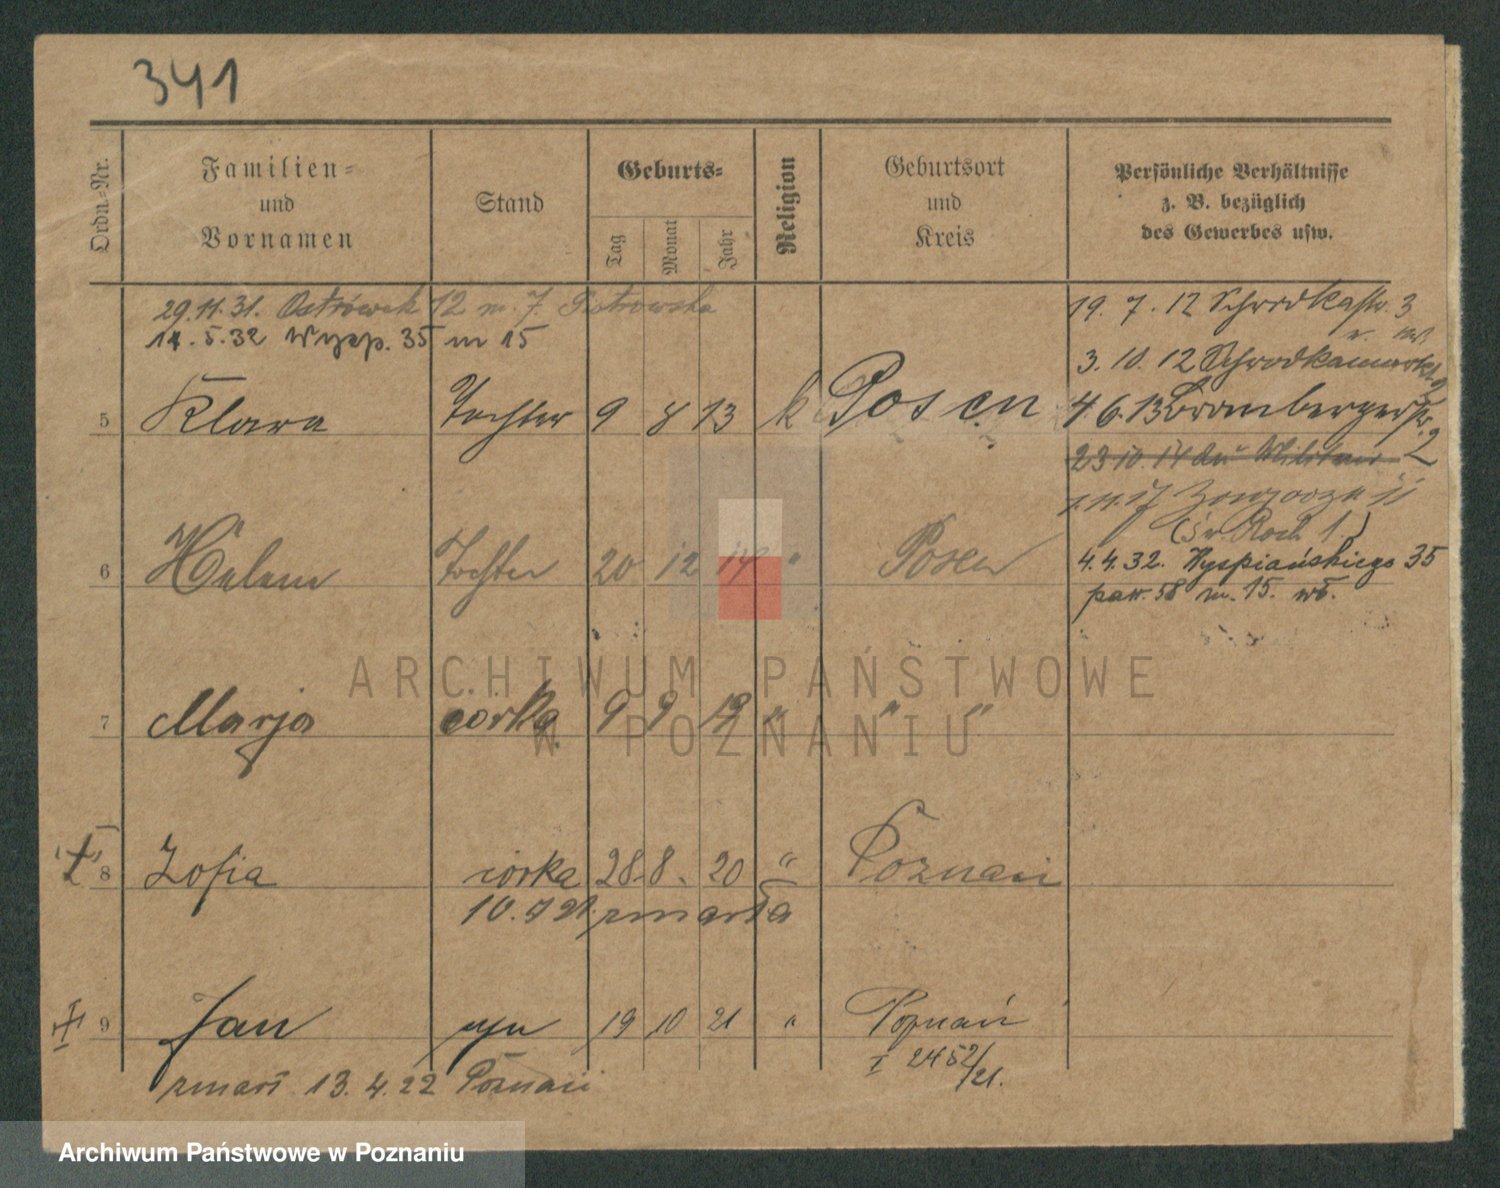 341
Ordn.-Nr.
Familien-
und
Vornamen
Stand
Geburts-
Tag
Monat
Jahr
Religion
Geburtsort
und
Kreis
Persönliche Verhältnisse
z. B. bezüglich
des Gewerbes usw.
29.11.31. Ostrówek 12 m. 7. Piotrowska
14.5.32 Wysp. 35 m 15
19. 7. 12 Schrodkastr. 3
3. 10. 12 Schrodkamarkt
5 Klara Tochter 9 8 13 k Posen
4. 6. 13 Brombergerstr. 2
23 10. 14 Militär
1. 11. 17 Zawady 11
(św Roch 1.)
6 Helene Tochter 20 12 14 " Posen
4.4.32. Wyspiańskiego 35
part. 58 m. 15. wł.
ARCHIWUM PAŃSTWOWE
W POZNANIU
7 Marja córka 9 9 19 " " "
8 Zofia córka 28. 8. 20 " Poznań
10. 9 21. zmarła
9 Jan syn 19 10 21 " Poznań
I 2452/21.
zmarł 13. 4. 22 Poznań
Archiwum Państwowe w Poznaniu